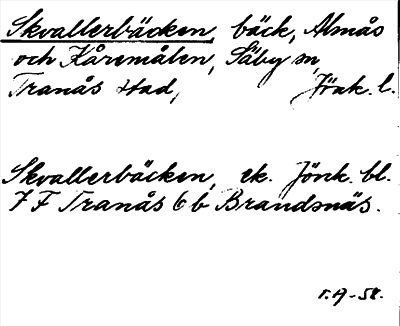 Skvallerbäcken, bäck, Almås
och Kåremålen, Säby sn,
Tranås stad, Jönk. l.
Skvallerbäcken, ek. Jönk. bl.
7 F Tranås 6 b Brandsnäs.
58.